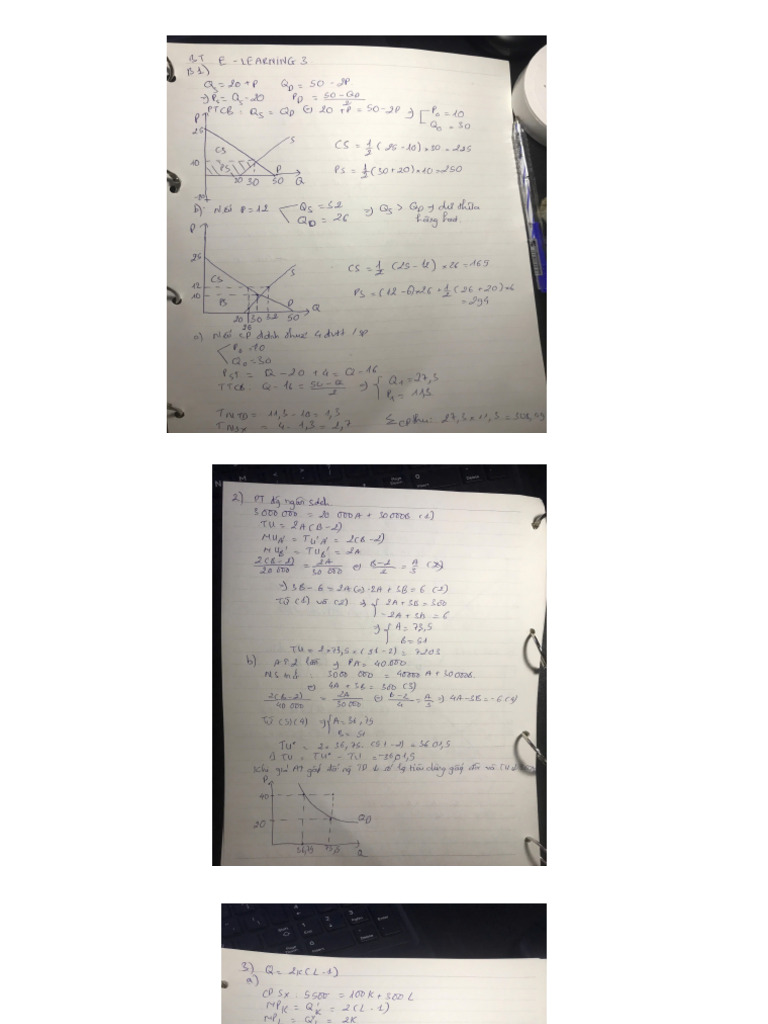 BT E - LEARNING 3
B1)
Qs = 20 + P QD = 50 - 2P
=> Ps = Qs - 20 PD = (50 - QD)/2
PTCB: Qs = QD <=> 20 + P = 50 - 2P => [P0 = 10
Q0 = 30
P
25
CS
S
10
PS
20 30 50 Q
P
-20
CS = 1/2 (25 - 10) x 30 = 225
PS = 1/2 (30 + 20) x 10 = 250
b) Nếu P = 12 < Qs = 32
QD = 26
=> Qs > QD => dư thừa
hàng hoá
P
25
CS
S
12
10
PS
P
Q
20 30 32 50
26
CS = 1/2 (25 - 12) x 26 = 169
PS = (12 - 6) x 26 + 1/2 (26 + 20) x 6
= 294
c) Nếu CP đánh thuế 4 đvtt / sp
P0 = 10
Q0 = 30
Ps1 = Q - 20 + 4 = Q - 16
PTCB: Q - 16 = (50 - Q)/2 => { Q1 = 27,3
P1 = 11,3
TNTD = 11,3 - 10 = 1,3
TNSX = 4 - 1,3 = 2,7
Σ CP thu: 27,3 x 11,3 = 308,49
2) PT đg ngân sách
3 000 000 = 20 000A + 30000B (1)
TU = 2A(B - 2)
MUA = TU'A = 2(B - 2)
MUB' = TUB' = 2A
2(B - 2)/20 000 = 2A/30 000 <=> (B - 2)/2 = A/3 (2)
=> 3B - 6 = 2A <=> -2A + 3B = 6 (2)
Từ (1) và (2) => { 2A + 3B = 300
-2A + 3B = 6
=> { A = 73,5
B = 51
TU = 2 x 73,5 x (51 - 2) = 7203
b) A tăng 2 lần => PA = 40.000
NS mới: 3000 000 = 40000 A + 30000B
<=> 4A + 3B = 300 (3)
2(B - 2)/40 000 = 2A/30000 <=> (B - 2)/4 = A/3 => 4A - 3B = -6 (4)
Từ (3)(4) => { A = 36,75
B = 51
TU* = 2 x 36,75 x (51 - 2) = 3601,5
=> TU = TU* - TU = -3601,5
P
40
20
QD
36,75 73,5
Q
3) Q = 2K(L - 1)
a)
CP SX: 5500 = 100K + 300L
MPK = Q'K = 2(L - 1)
MPL = Q'L = 2K